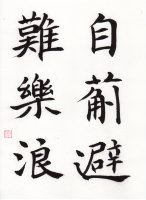 自萠避
難樂浪